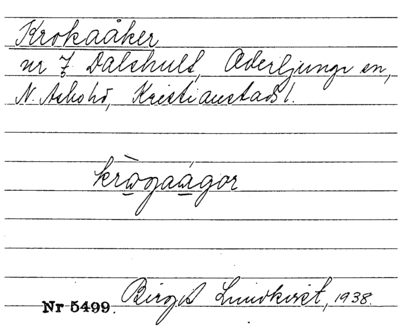 Krokaåker
nr 7 Dalshult, Oderljunga sn,
N. Åsbohd, Kristianstads l.
krògaågor
Nr 5499. Birger Lundkvist, 1938.